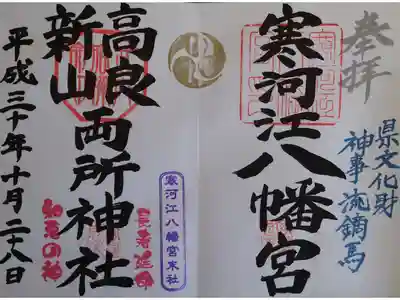 奉拝
県文化財
神事流鏑馬
寒河江八幡宮
寒河江八幡宮末社
高良
新山
両所神社
平成三十年十月二十八日